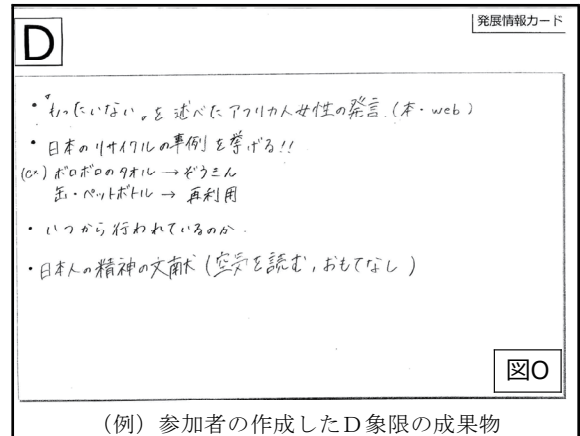 発展情報カード
D
・『もったいない』を述べたアフリカ人女性の発言.(本・web)
・日本のリサイクルの事例を挙げる!!
(ex) ボロボロのタオル → ぞうきん
缶・ペットボトル → 再利用
・いつから行われているのか.
・日本人の精神の文献(空気を読む,おもてなし)
図O
(例)参加者の作成したD象限の成果物